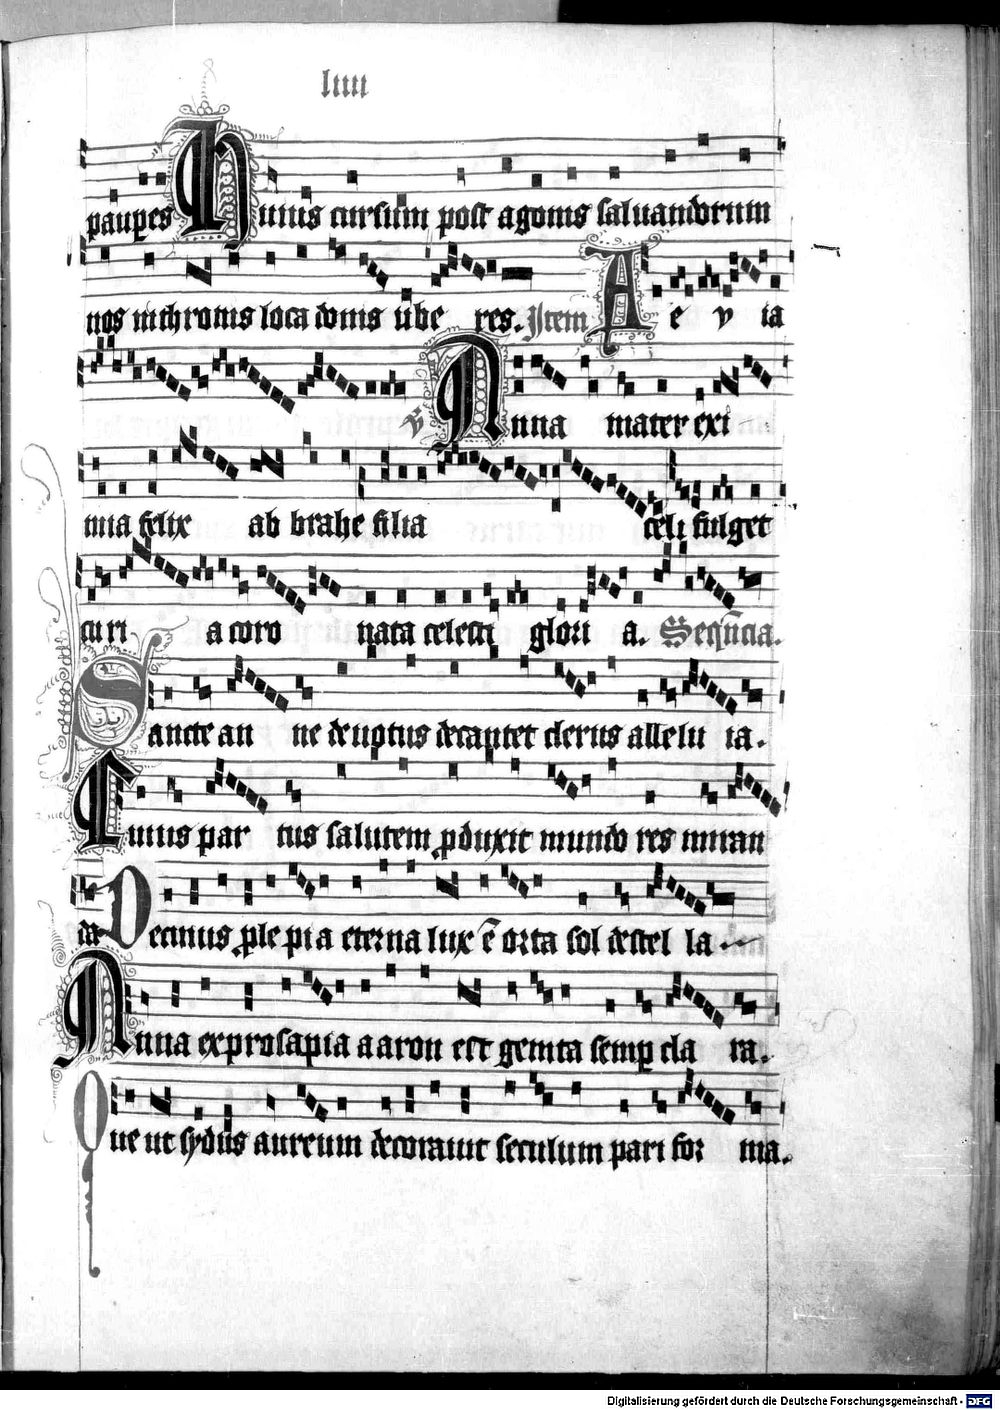 liiii
paupes Huius cursum post agonis saluandorum
nos in thronis loca donis ube res. Item A e v ia
v̄ Anna mater exi
mia felix ab brahe filia celi fulget
curi a coro nata celesti glori a. Seqūcia.
Sancte an ne deuotus decantet clerus allelu ia.
Cuius par tus salutem ꝓduxit mundo res miran
da Decimus ꝓle pi a eterna lux ē orta sol destel la
Anna ex prosapia aaron est genita semꝑ cla ra.
Que ut sydus aureum decorauit seculum pari for ma.
Digitalisierung gefördert durch die Deutsche Forschungsgemeinschaft - DFG